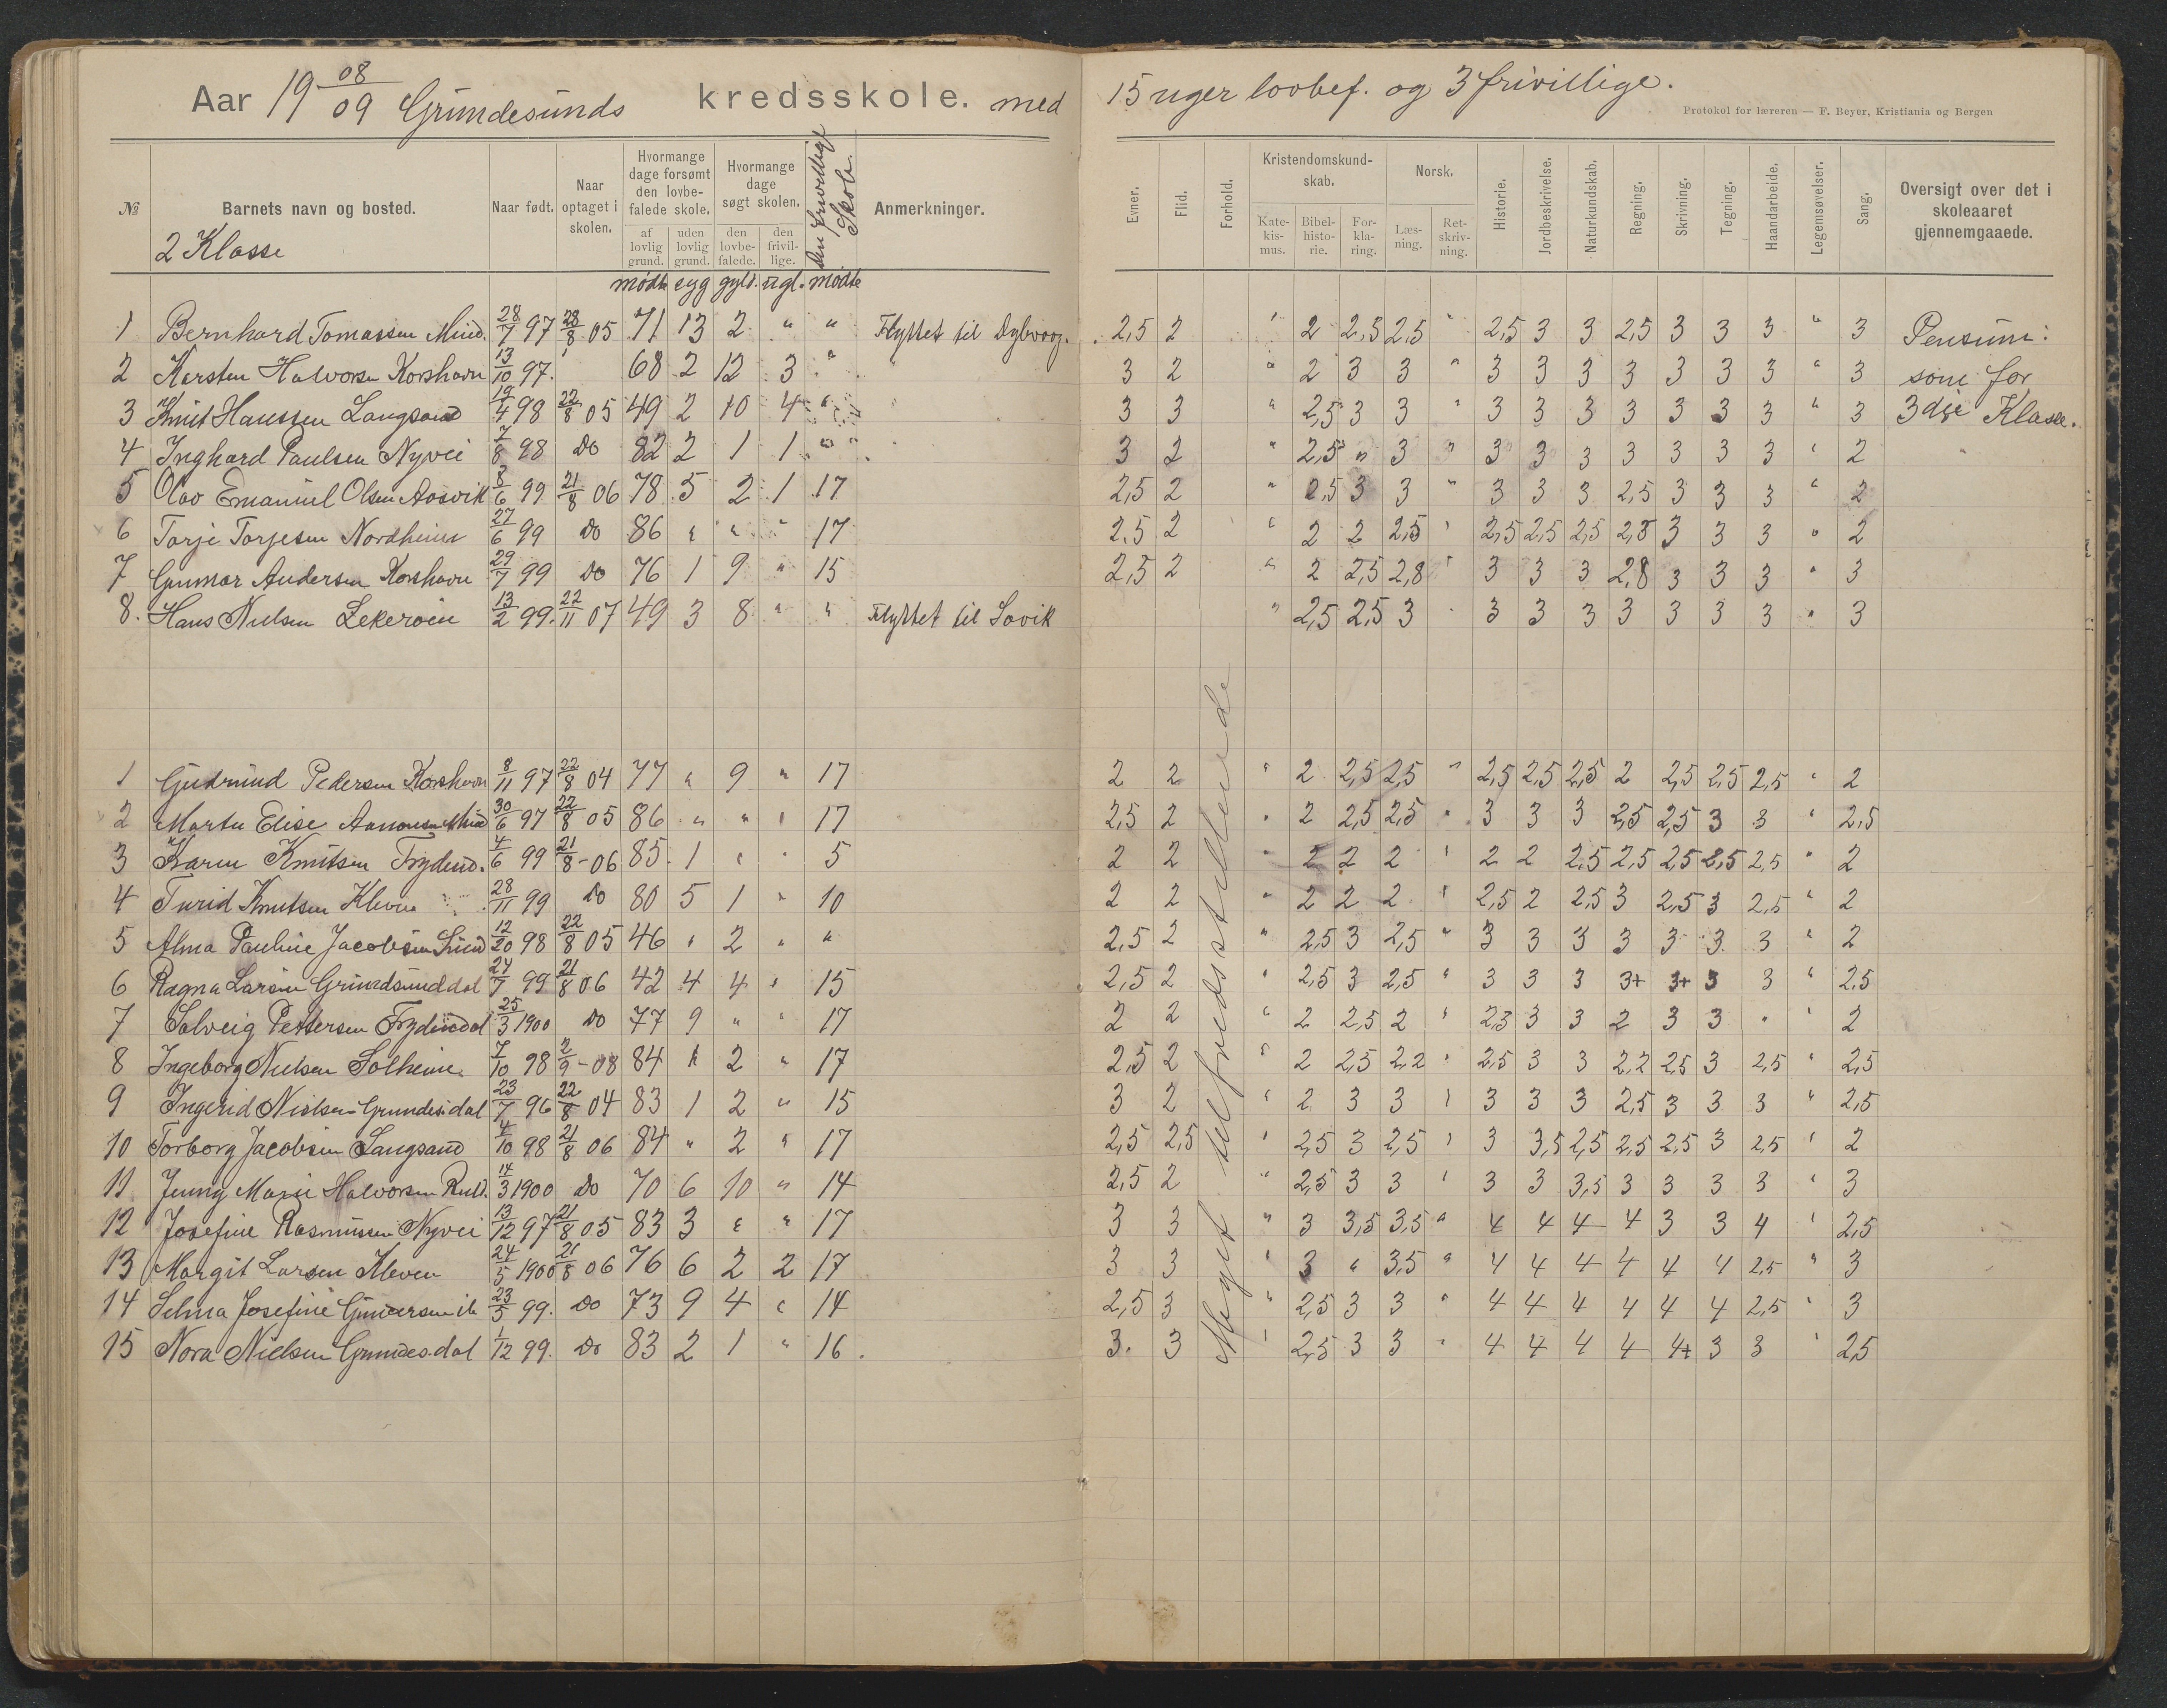 Aar 19 08/09 Grundesunds kredsskole. med 15 uger lovbef. og 3 frivillige.
Protokol for læreren — F. Beyer, Kristiania og Bergen
№ Barnets navn og bosted. Naar født. Naar optaget i skolen. Hvormange dage forsømt den lovbefalede skole. af lovlig grund. uden lovlig grund. Hvormange dage søgt skolen. den lovbefalede. den frivillige. Den frivillige Skole. Anmerkninger.
Evner. Flid. Forhold. Kristendomskundskab. Katekismus. Bibelhistorie. Forklaring. Norsk. Læsning. Retskrivning. Historie. Jordbeskrivelse. Naturkundskab. Regning. Skrivning. Tegning. Haandarbeide. Legemsøvelser. Sang. Oversigt over det i skoleaaret gjennemgaaede.
2 Klasse
mødte syg gyld. ugl. mødte
1 Bernhard Tomassen 28/7 97 28/8 05 71 13 2 " " Flyttet til Dybvaag. 2,5 2 " 2 2,5 2,5 " 2,5 3 3 2,5 3 3 3 " 3 Pensum:
2 Karsten Halvorsen Korshavn 13/10 97. 68 2 12 3 " 3 2 " 2 3 3 " 3 3 3 3 3 3 3 " 3 som for
3 Knut Hanssen Langsand 19/4 98 22/8 05 49 2 10 4 " 3 3 " 2,5 3 3 " 3 3 3 3 3 3 3 " 3 3dje Klasse.
4 Inghard Paulsen Nyvei 7/8 98 Do 82 2 1 1 " 3 2 " 2,5 " 3 " 3 3 3 3 3 3 3 " 2
5 Olav Emanuel Olsen Aasvik 8/6 99 21/8 06 78 5 2 1 17 2,5 2 " 2,5 3 3 " 3 3 3 2,5 3 3 3 " 2
6 Torje Torjesen Nordheim 27/6 99 Do 86 " " " 17 2,5 2 " 2 2 2,5 " 2,5 2,5 2,5 2,8 3 3 3 " 2
7 Gunnar Andersen Korshavn 29/7 99 Do 76 1 9 " 15 2,5 2 " 2 2,5 2,8 " 3 3 3 2,8 3 3 3 " 3
8. Hans Nielsen Lekerøen 13/2 99. 22/11 07 49 3 8 " " Flyttet til Søvik " 2,5 2,5 3 " 3 3 3 3 3 3 3 " 3
Meget tilfredsstillende
1 Gudrund Pedersen Korshavn 8/11 97 22/8 04 77 " 9 " 17 2 2 " 2 2,5 2,5 " 2,5 2,5 2,5 2 2,5 2,5 2,5 " 2
2 Marta Elise Aanonsen 30/6 97 22/8 05 86 " " " 17 2,5 2 " 2 2,5 2,5 " 3 3 3 2,5 2,5 3 3 " 2,5
3 Karen Knutsen Frydend. 4/6 99 21/8 - 06 85 1 " " 5 2 2 " 2 2 2 " 2 2 2,5 2,5 2,5 2,5 2,5 " 2
4 Turid Knutsen Kleven 28/11 99 Do 80 5 1 " 10 2 2 " 2 2 2 " 2,5 2 2,5 3 2,5 3 2,5 " 2
5 Alma Pauline Jacobsen Sund 12/20 98 22/8 05 46 " 2 " " 2,5 2 " 2,5 3 2,5 " 3 3 3 3 3 3 3 " 2
6 Ragna Larsen Grundsunddal 24/7 99 21/8 06 42 4 4 " 15 2,5 2 " 2,5 3 2,5 " 3 3 3 3+ 3+ 3 3 " 2,5
7 Solveig Pettersen Frydendal 25/3 1900 Do 77 9 " " 17 2 2 " 2 2,5 2 " 2,3 3 3 2 3 3 " " 2
8 Ingeborg Nielsen Solheim 7/10 98 2/9 - 08 84 " 2 " 17 2,5 2 " 2 2,5 2,2 " 2,5 3 3 2,2 2,5 3 2,5 " 2,5
9 Ingerid Nielsen Grundes.dal 23/7 96 22/8 04 83 1 2 " 15 3 2 " 2 3 3 " 3 3 3 2,5 3 3 3 " 2,5
10 Torborg Jacobsen Langsand 4/10 98 21/8 06 84 " 2 " 17 2,5 2,5 " 2,5 3 2,5 " 3 3,5 2,5 2,5 2,5 3 2,5 " 2
11 Jenny Marie Halvorsen 14/3 1900 Do 70 6 10 " 14 2,5 2 " 2,5 3 3 " 3 3 3,5 3 3 3 3 " 3
12 Josefine Rasmussen Nyvei 13/12 97 21/8 05 83 3 " " 17 3 3 " 3 3,5 3,5 " 4 4 4 4 3 3 4 " 2,5
13 Margit Larsen Kleven 24/5 1900 21/8 06 76 6 2 2 17 3 3 " 3 " 3,5 " 4 4 4 4 4 4 2,5 " 3
14 Selma Josefine Gundersen 23/5 99. Do 73 9 4 " 14 2,5 3 " 2,5 3 3 " 4 4 4 4 4 4 2,5 " 3
15 Nora Nielsen Grundes.dal 1/12 99. Do 83 2 1 " 16. 3. 3 " 2,5 3 3 " 4 4 4 4 4+ 3 3 " 2,5